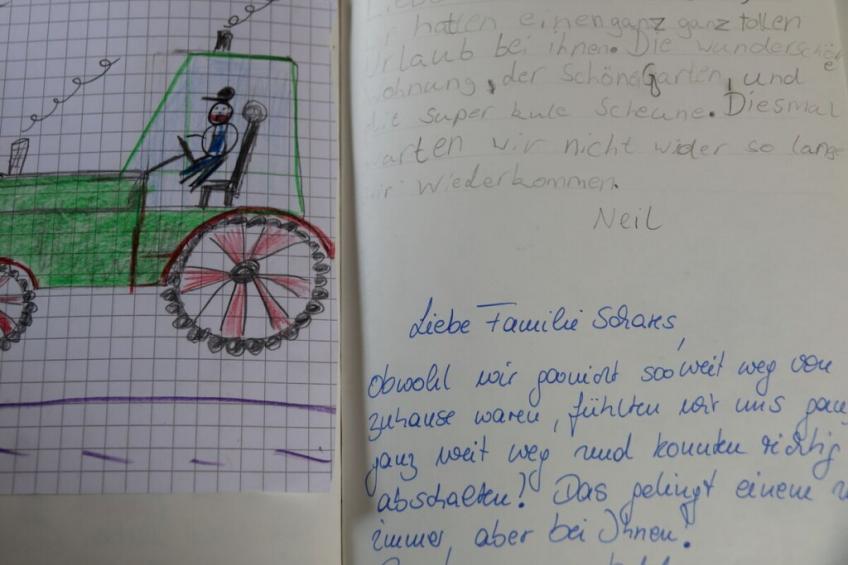 Liebe
hatten einen ganz ganz tollen
Urlaub bei ihnen. Die wunderschöne
Wohnung, der Schöne Garten, und
die super kule Scheune. Diesmal
warten wir nicht wider so lange
wir wiederkommen.
Neil
Liebe Familie Schares,
obwohl wir garnicht soo weit weg von
zuhause waren, fühlten wir uns ganz
ganz weit weg und konnten richtig
abschalten! Das gelingt einem
immer, aber bei Ihnen!